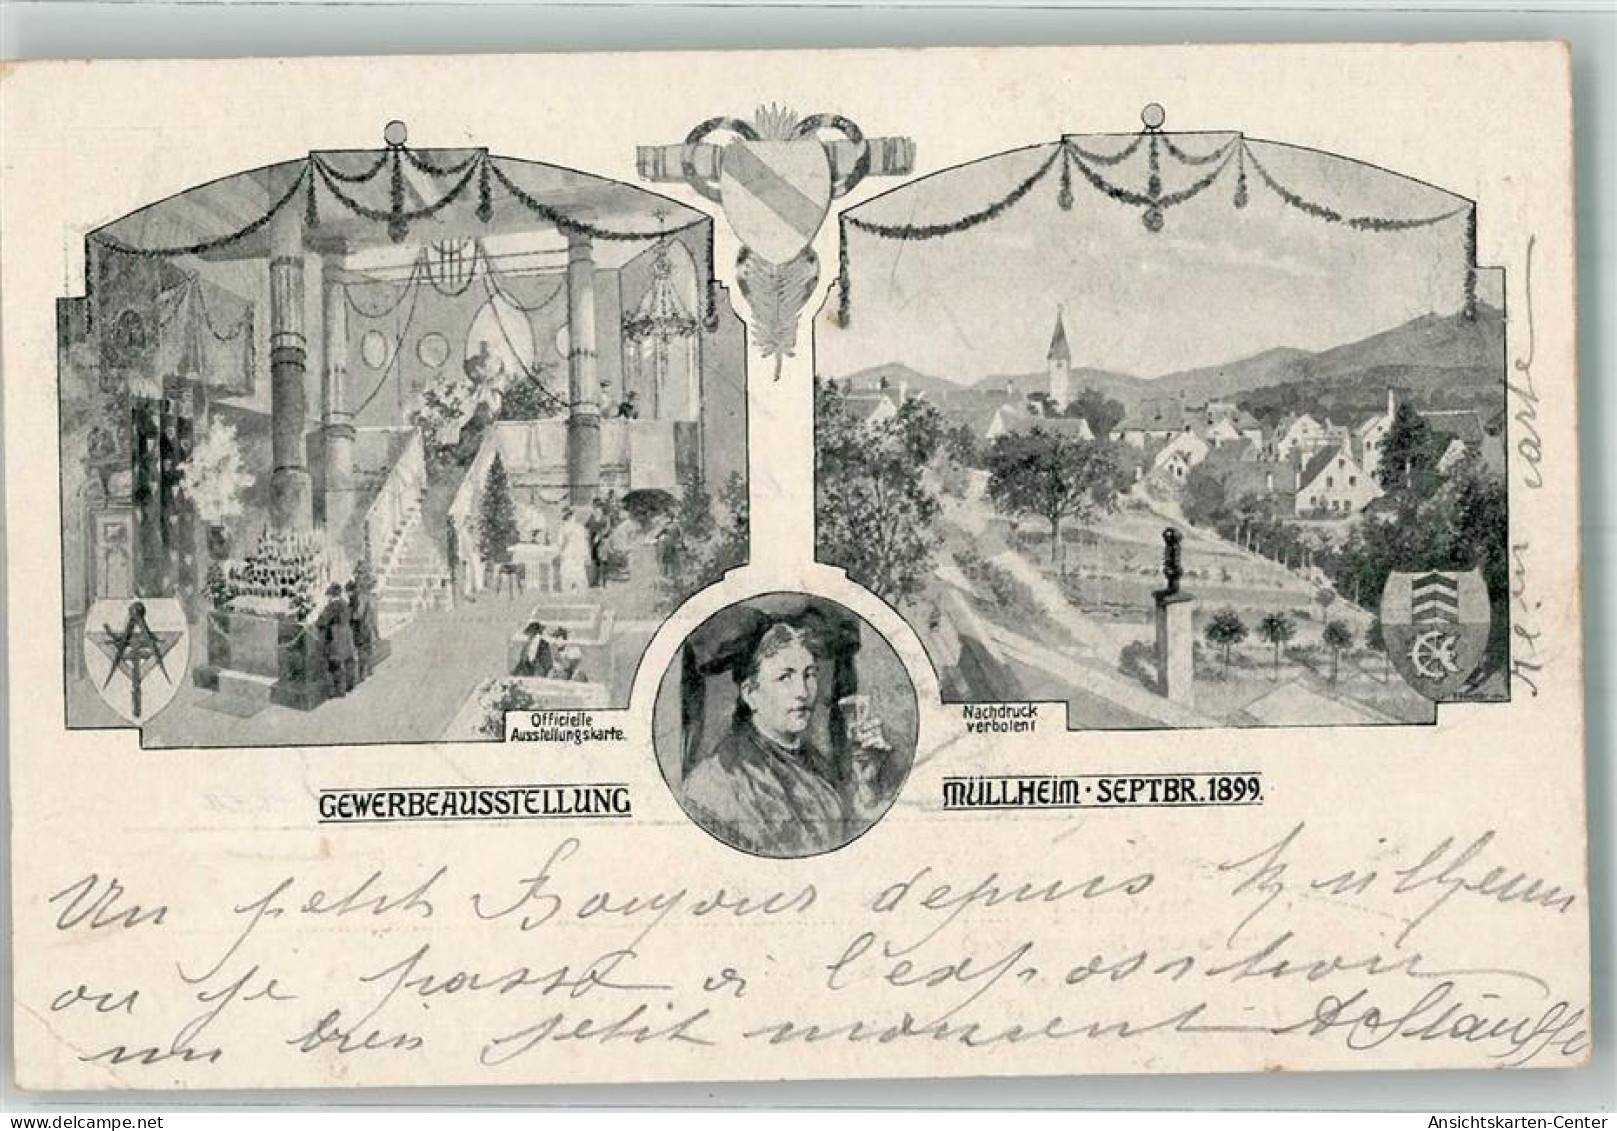 Officielle
Ausstellungskarte.
Nachdruck
verboten!
GEWERBEAUSSTELLUNG
MÜLLHEIM · SEPTBR. 1899.
Un petit Bonjour depuis Müllheim
ou je passe à l'exposition
un bien petit moment
carte
Ansichtskarten-Center